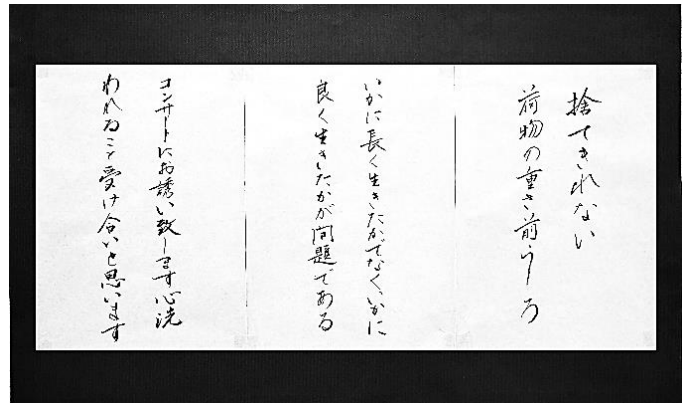 捨てきれない
荷物の重さ前うしろ
いかに長く生きたかでなく、いかに
良く生きたかが問題である
コンサートにお誘い致します心洗
われること受け合いと思います